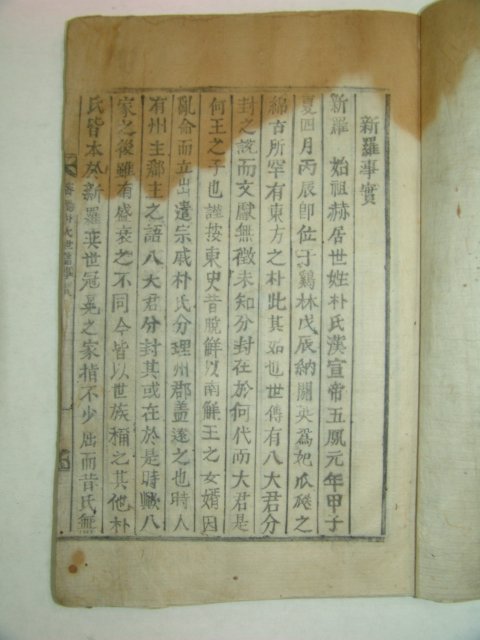 新羅事實
新羅 始祖赫居世姓朴氏漢宣帝五鳳元年甲子
夏四月丙辰卽位于鷄林戊辰納閼英爲妃瓜瓞之
綿古所罕有東方之朴此其始也世傳有八大君分
封之說而文獻無徵未知分封在於何代而大君是
何王之子也謹按東史昔脫解以南解王之女婿因
亂命而立出遣宗戚朴氏分理州郡盖遂之也時人
有州主郡主之語八大君分封其或在於是時歟八
家之後雖有盛衰之不同今皆以世族稱之其他朴
氏皆本於新羅奕世冠冕之家指不少屈而昔氏無